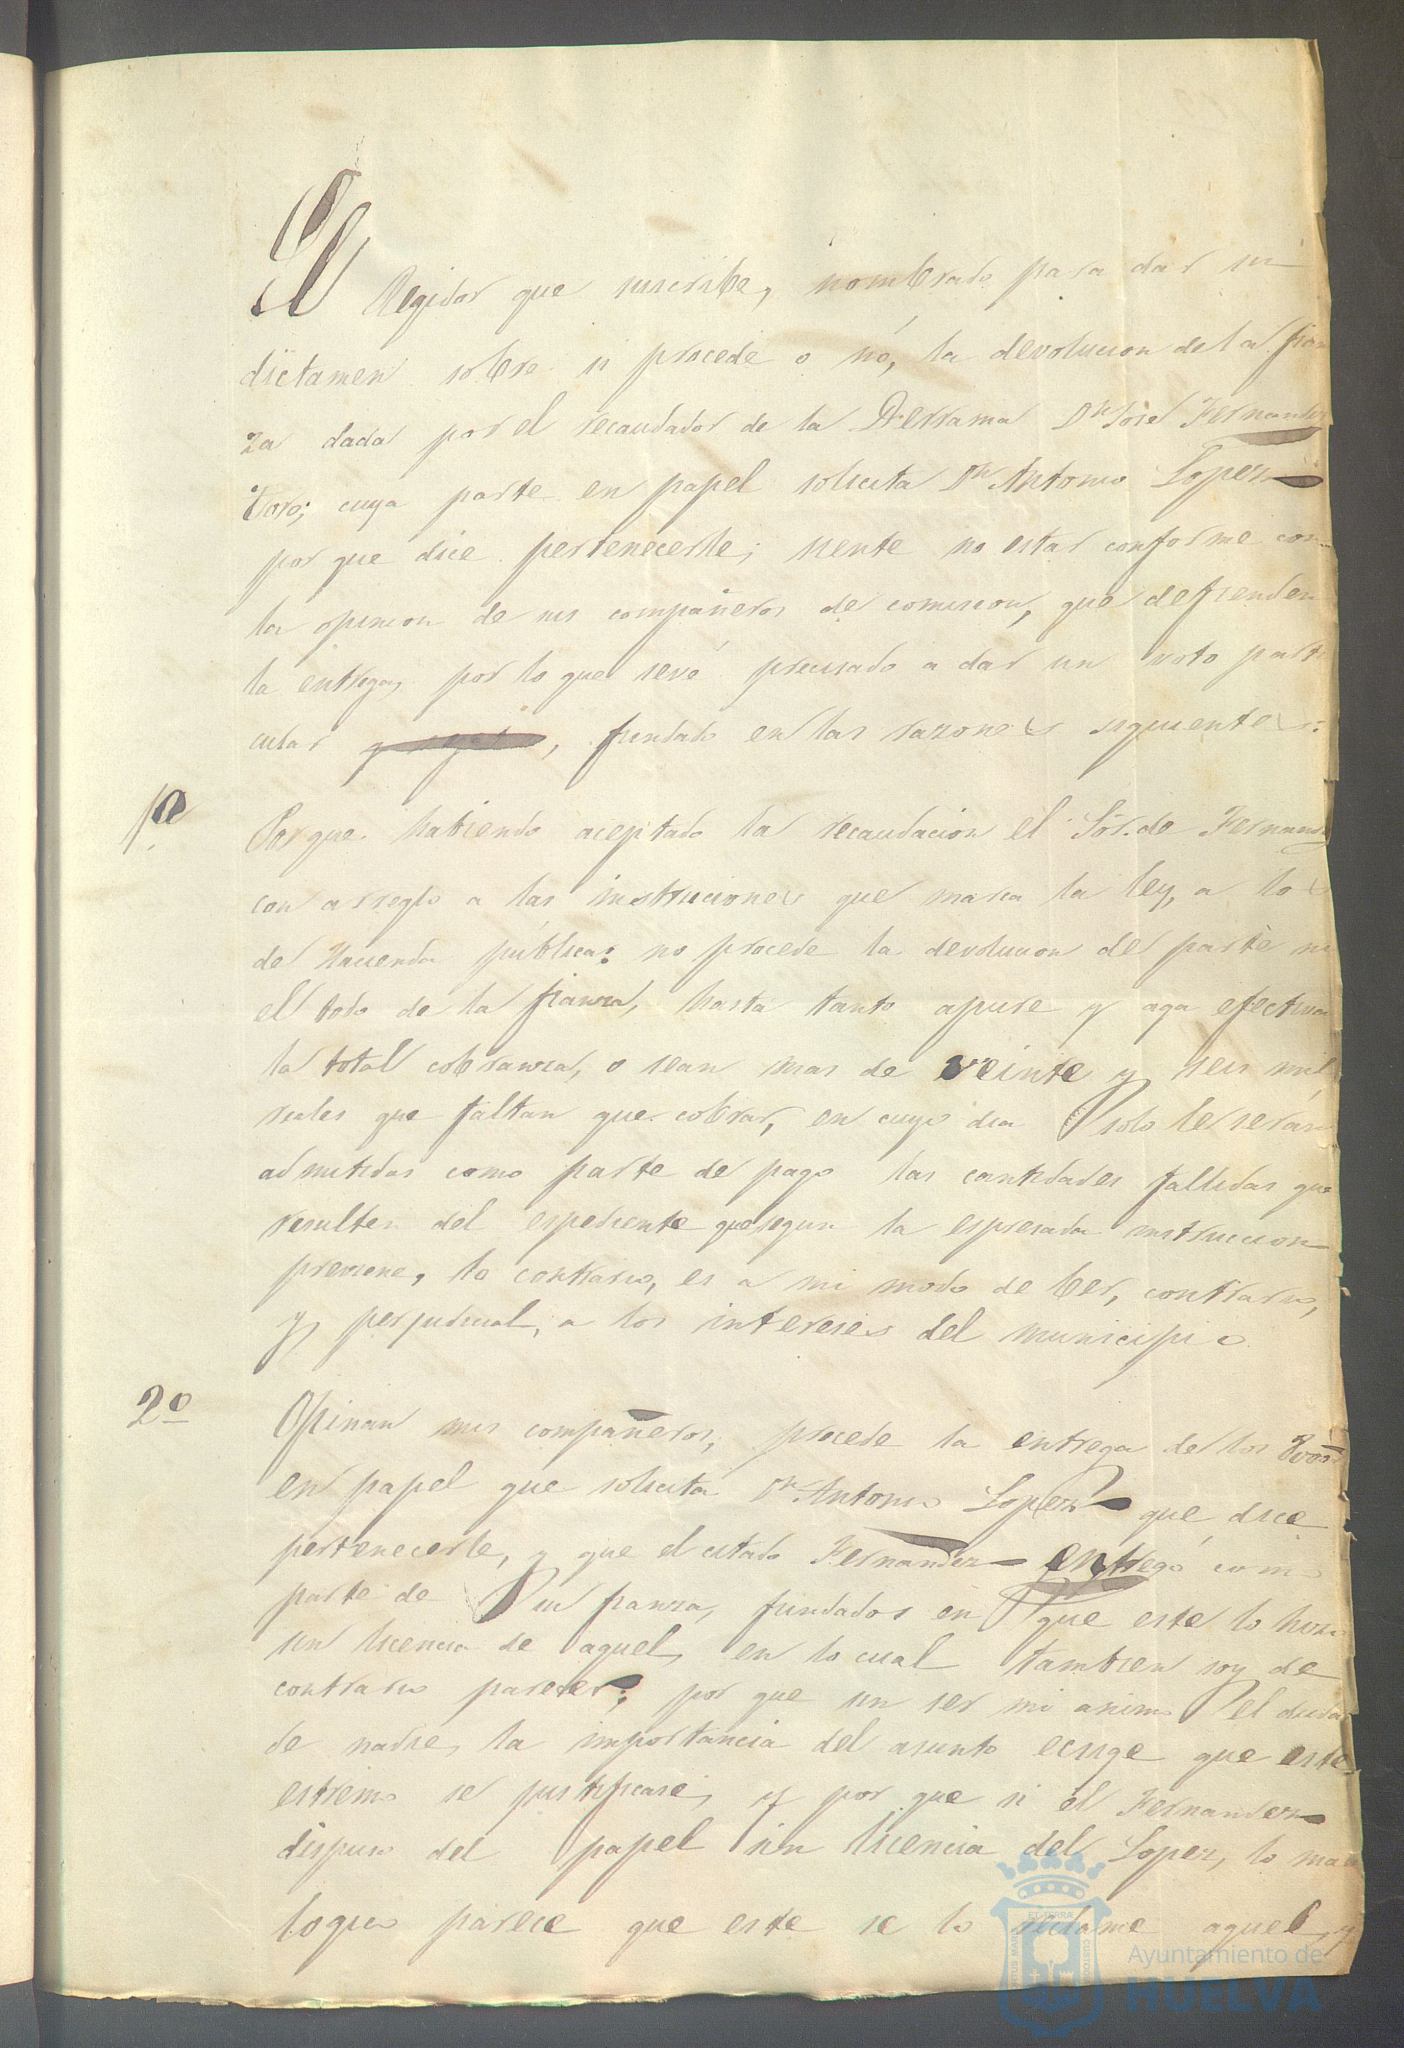 El Regidor que suscribe, nombrado para dar su
dictamen sobre si procede o nó, la devolucion de la fian
za dada por el recaudador de la Derrama Dn José Fernandez
Toro; cuya parte en papel solicita Dn Antonio Lopez
por que dice pertenecerle; siente no estar conforme con
la opinion de sus compañeros de comision, que defienden
la entrega, por lo que sevé precisado a dar un voto parti
cular , fundado en las razones siguientes:
1a Porque habiendo aceptado la recaudacion el Sor. de Fernandz
con arreglo a las instruciones que marca la ley, a los
de Hacienda pública; no procede la devolucion de parte ni
el todo de la fianza, hasta tanto apure y aga efectiva
la total cobranza, o sean mas de veinte y seis mil
reales que faltan que cobrar, en cuyo dia solo le serán
admitidas como parte de pago las cantidades fallidas que
resulten del espediente que segun la espresada instruccion
previene, lo contrario, es a mi modo de ber, contrario,
y perjudicial, a los intereses del municipio.
2o Opinan mis compañeros, procede la entrega de los
en papel que solicita Dn Antonio Lopez que dice
pertenecerle, y que el citado Fernandez entregó como
parte de su fianza, fundados en que este lo hizo
sin licencia de aquel, en lo cual tambien soy de
contrario parecer; por que sin ser mi animo el dudar
de nadie, la importancia del asunto ecsige que este
estremo se justificase, y por que si el Fernandez
dispuso del papel sin licencia del Lopez, lo mas
logico parece que este se lo reclame aquel, y
Ayuntamiento de
HUELVA